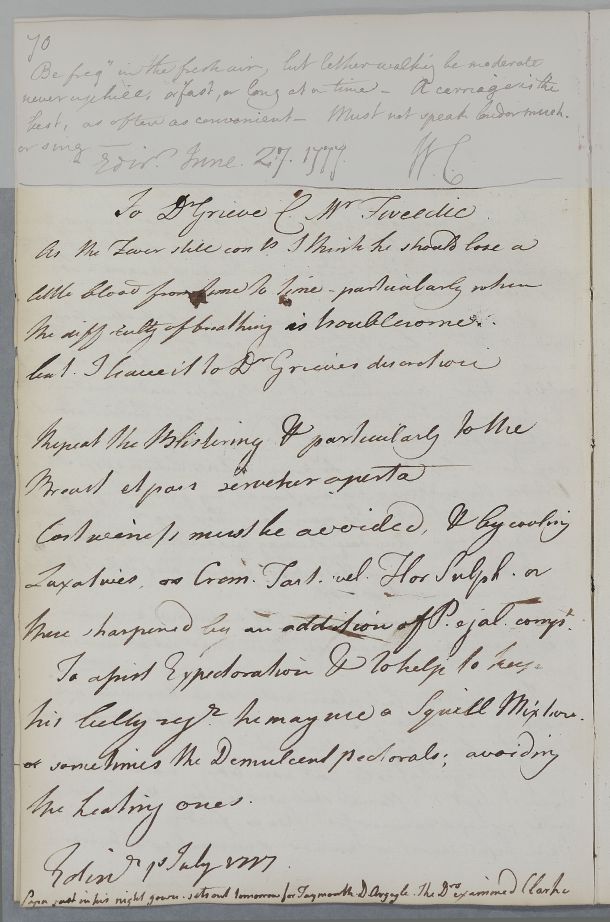 70
Be freqt in the fresh air, but let her walking be moderate
never up hill, or fast, or long at a time - A carriage is the
best, as often as convenient - Must not speak loud or much.
or sing Edinr. June. 27. 1777. W. C.
To Dr Grieve C. Mr Tweedie
As the Fever still conts. I think he should lose a
little blood from time to time - particularly when
the difficulty of breathing is troublesome.
but I leave it to Dr Grieves discretion
Repeat the Blistering & particularly to the
Breast et pars servetur aperta
Costiveness must be avoided, & by cooling
Laxatives, as Crem. Tart. vel. Flor Sulph. or
these sharpened by an addition of P. e jal. compt.
To assist Expectoration & to help to keep
his belly regr. he may use a Squill Mixture.
or sometimes the Demulcent pectorals; avoiding
the heating ones.
Edinr 1st July 1777.
Papa sat in his night gown - sets out tomorrow for Taymouth D. Argyle. The Drs examined Clarke